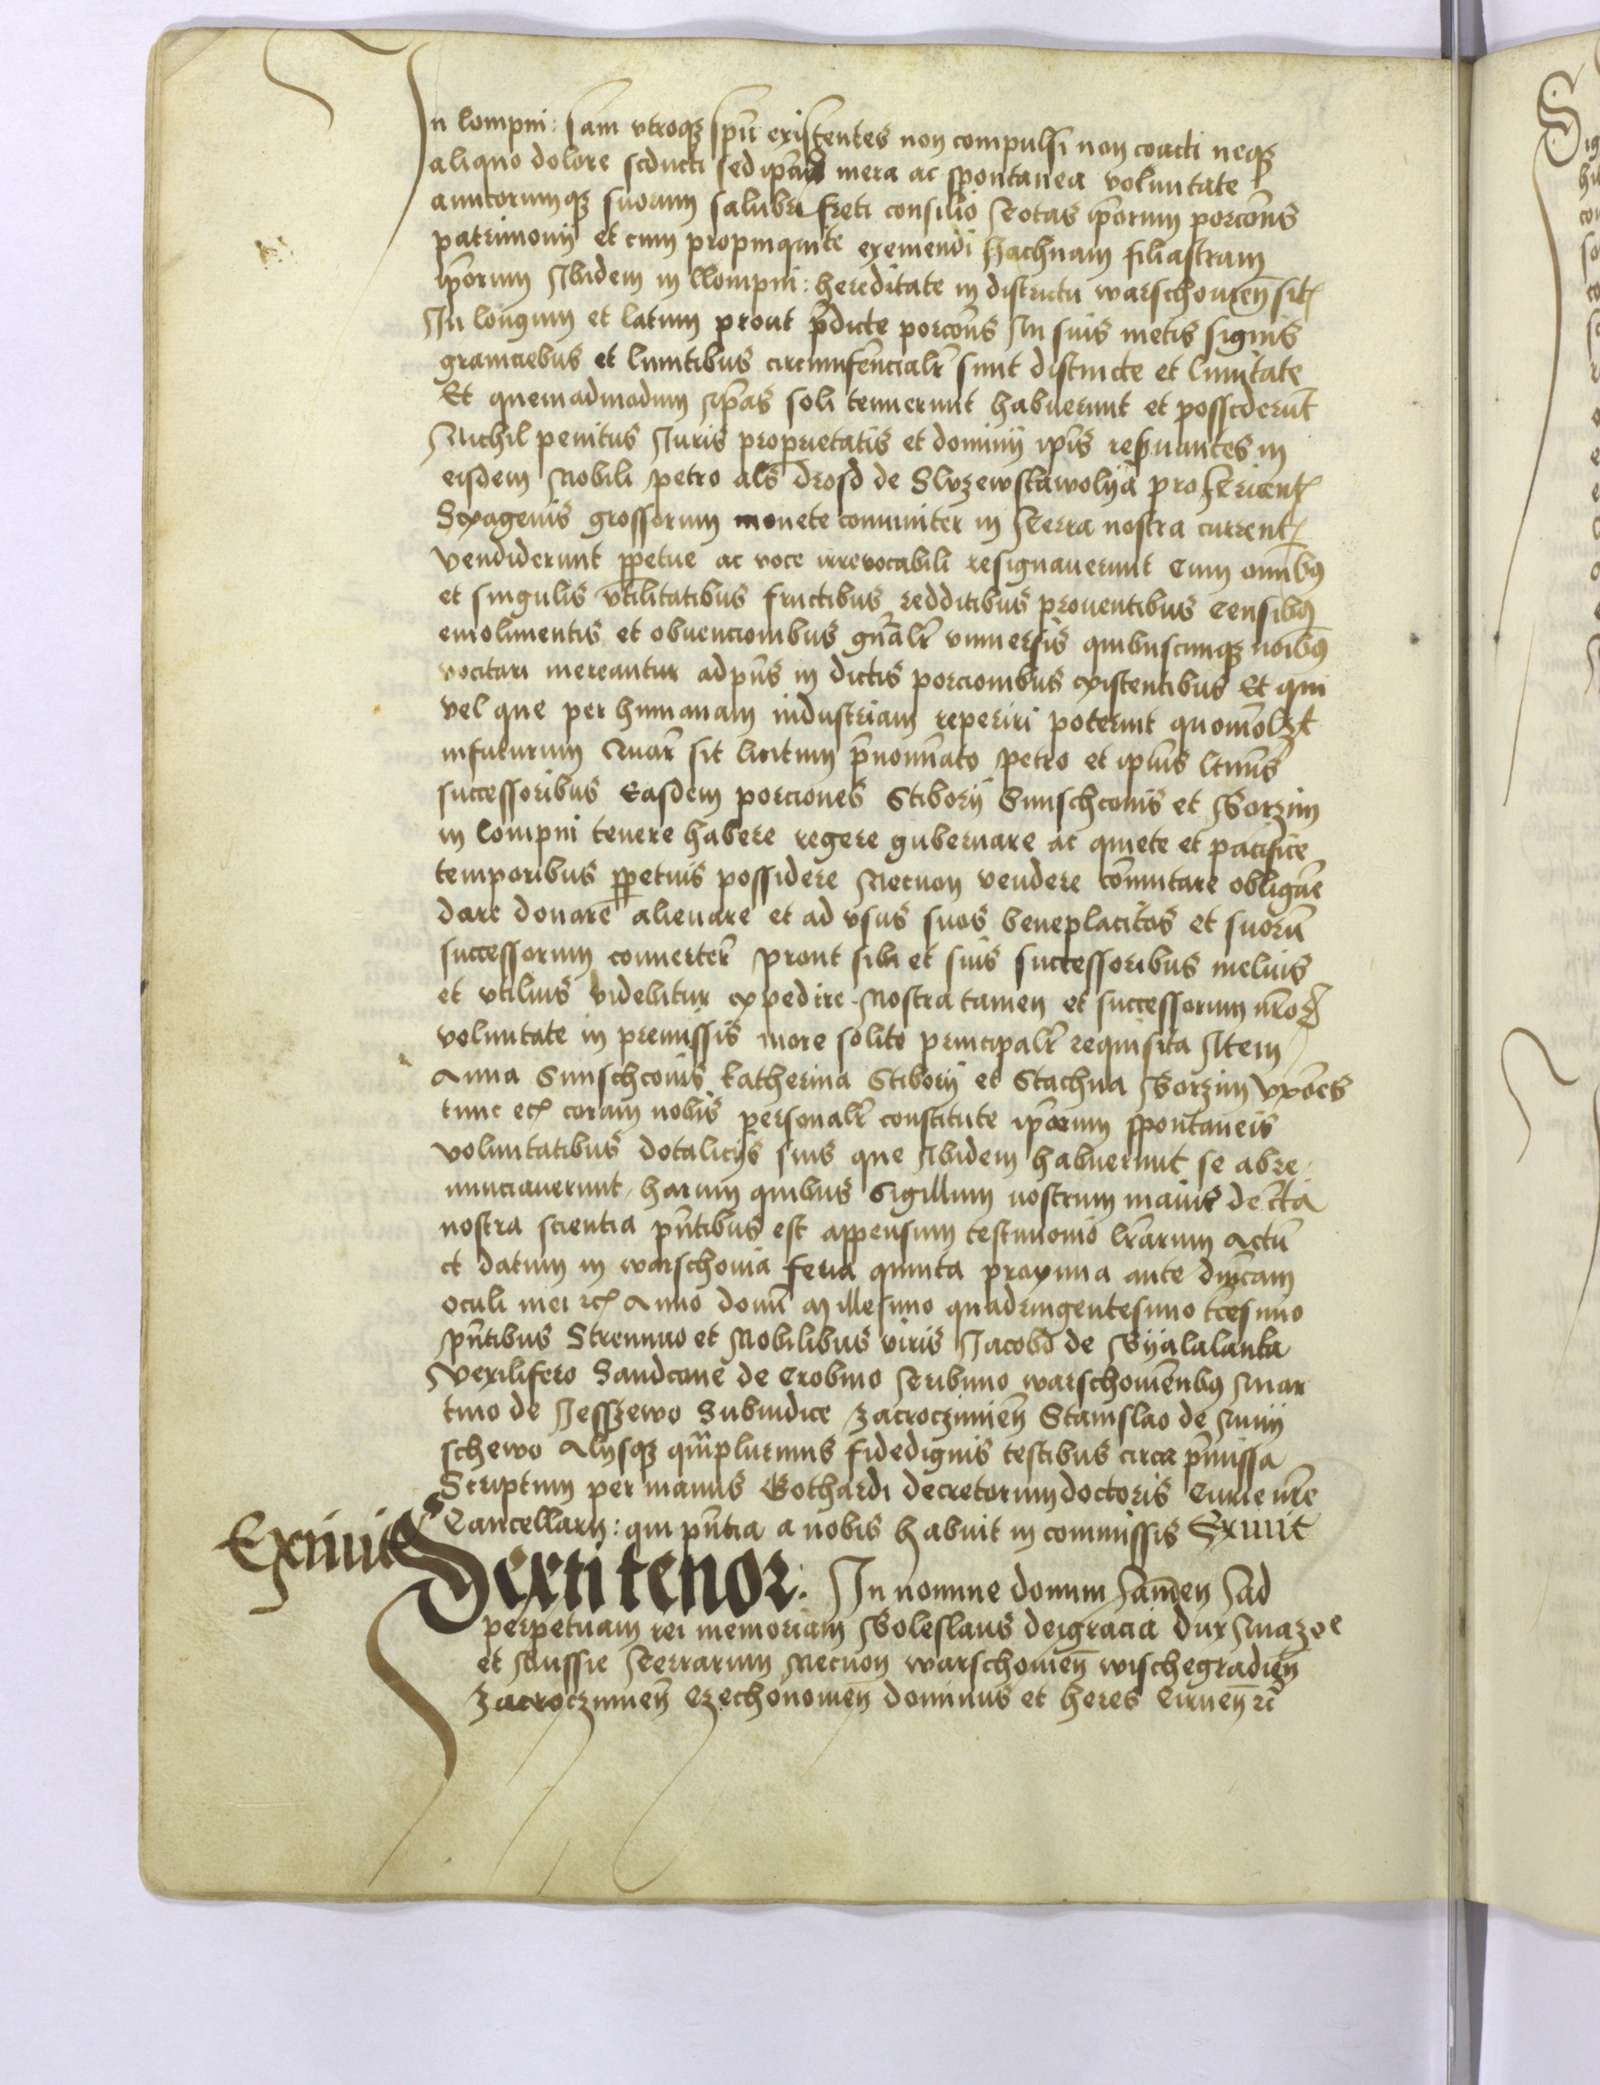 In lompni: sani vtroqȝ spū existentes non compulsi non coacti neqȝ
aliquo dolore seducti sed ipōrū mera ac spontanea voluntate
amicorumqȝ suorum salubri freti consilio Totas ip̄orum porcōnes
patrimonij et cum propinquite exemendi hachnam filiastram
ip̄orum Ibidem in llompni: hereditate in districtu warschouien̄ sit̄
In longum et latum prout p̄dicte porcōnes In suis metis signis
graniciebus et limitibus circumferencialr̄ sunt distincte et limitate
Et quemadmodum ip̄as soli tenuerunt habuerunt et possederūt
Nichil penitus Iuris proprietatis et dominij ip̄is res̄uantes in
eisdem Nobili petro als drosd de Sluzewstawolya pro Tricent̄
Sexagenis grossorum monete com̄uniter in Terra nostra current̄
vendiderunt ꝑpetue ac voce irreuocabili resignauerunt Cum omnibꝫ
et singulis vtilitatibus fructibus redditibus prouentibus Censibꝫ
emolimentis et obuencionibus gn̄alr̄ vniuersis quibuscunqȝ noībꝫ
vocitari mereantur adpn̄s in dictis porcionibus existentibus Et qui
vel que per humanam industriam reperiri poterint quomōlꝫt
infuturum Quar̄ sit licitum p̄nominato Petro et ip̄ius ltimīs
successoribus Easdem porciones Stiborij Sunschconis et Borzim
in lompni tenere habere regere gubernare ac quiete et pacifice
temporibus ꝑpetuis possidere Necnon vendere cōmutare obligāre
dare donare alienare et ad vsus suos beneplacitos et suorū
successorum conuerter̄ prout sibi et suis successoribus melius
et vtilius videbitur expedire Nostra tamen et successorum nr̄oꝝ
voluntate in premissis more solito principalr̄ requisita Item
Anna Sunschconis katherina Stiborij et Stachna Borzim vxōres
tunc etc̄ coram nobis personalr̄ constitute ip̄arum spontaneis
voluntatibus dotalicijs suis que Ibidem habuerunt se abre
nunciauerunt harum quibus Sigillum nostrum maius de c̄ta
nostra scientia pn̄tibus est appensum testimonio lr̄arum Actū
et datum in warschouia feria quinta proxima ante dn̄icam
oculi mei etc̄ Anno domī Millesimo quadringentesimo t̄cesimo
pn̄tibus Strennuo et Nobilibus viris Jacobo de Byalalanka
Vexilifero Sandcone de Crobino Tribuno warschouien̄bꝫ Mar
tino de Jeszewo Subiudice Zacrocziimien̄ Stanislao de Mnij
schewo Alysqȝ qm̄plurimis fidedignis testibus circa p̄missa
Scriptum per manus Gothardi decretorum doctoris Curie nr̄e
Cancellarij: qui pn̄tia a nobis habuit in commissis Exiuit
Exiuit
Sexti tenor: In nomine domini Amen Ad
perpetuam rei memoriam Boleslaus deigracia dux Mazoe
et Russie Terrarum Necnon warschouien̄ wischegradien̄
Zacroczimien̄ Czechonouien̄ dominus et heres Ciruen̄ etc̄